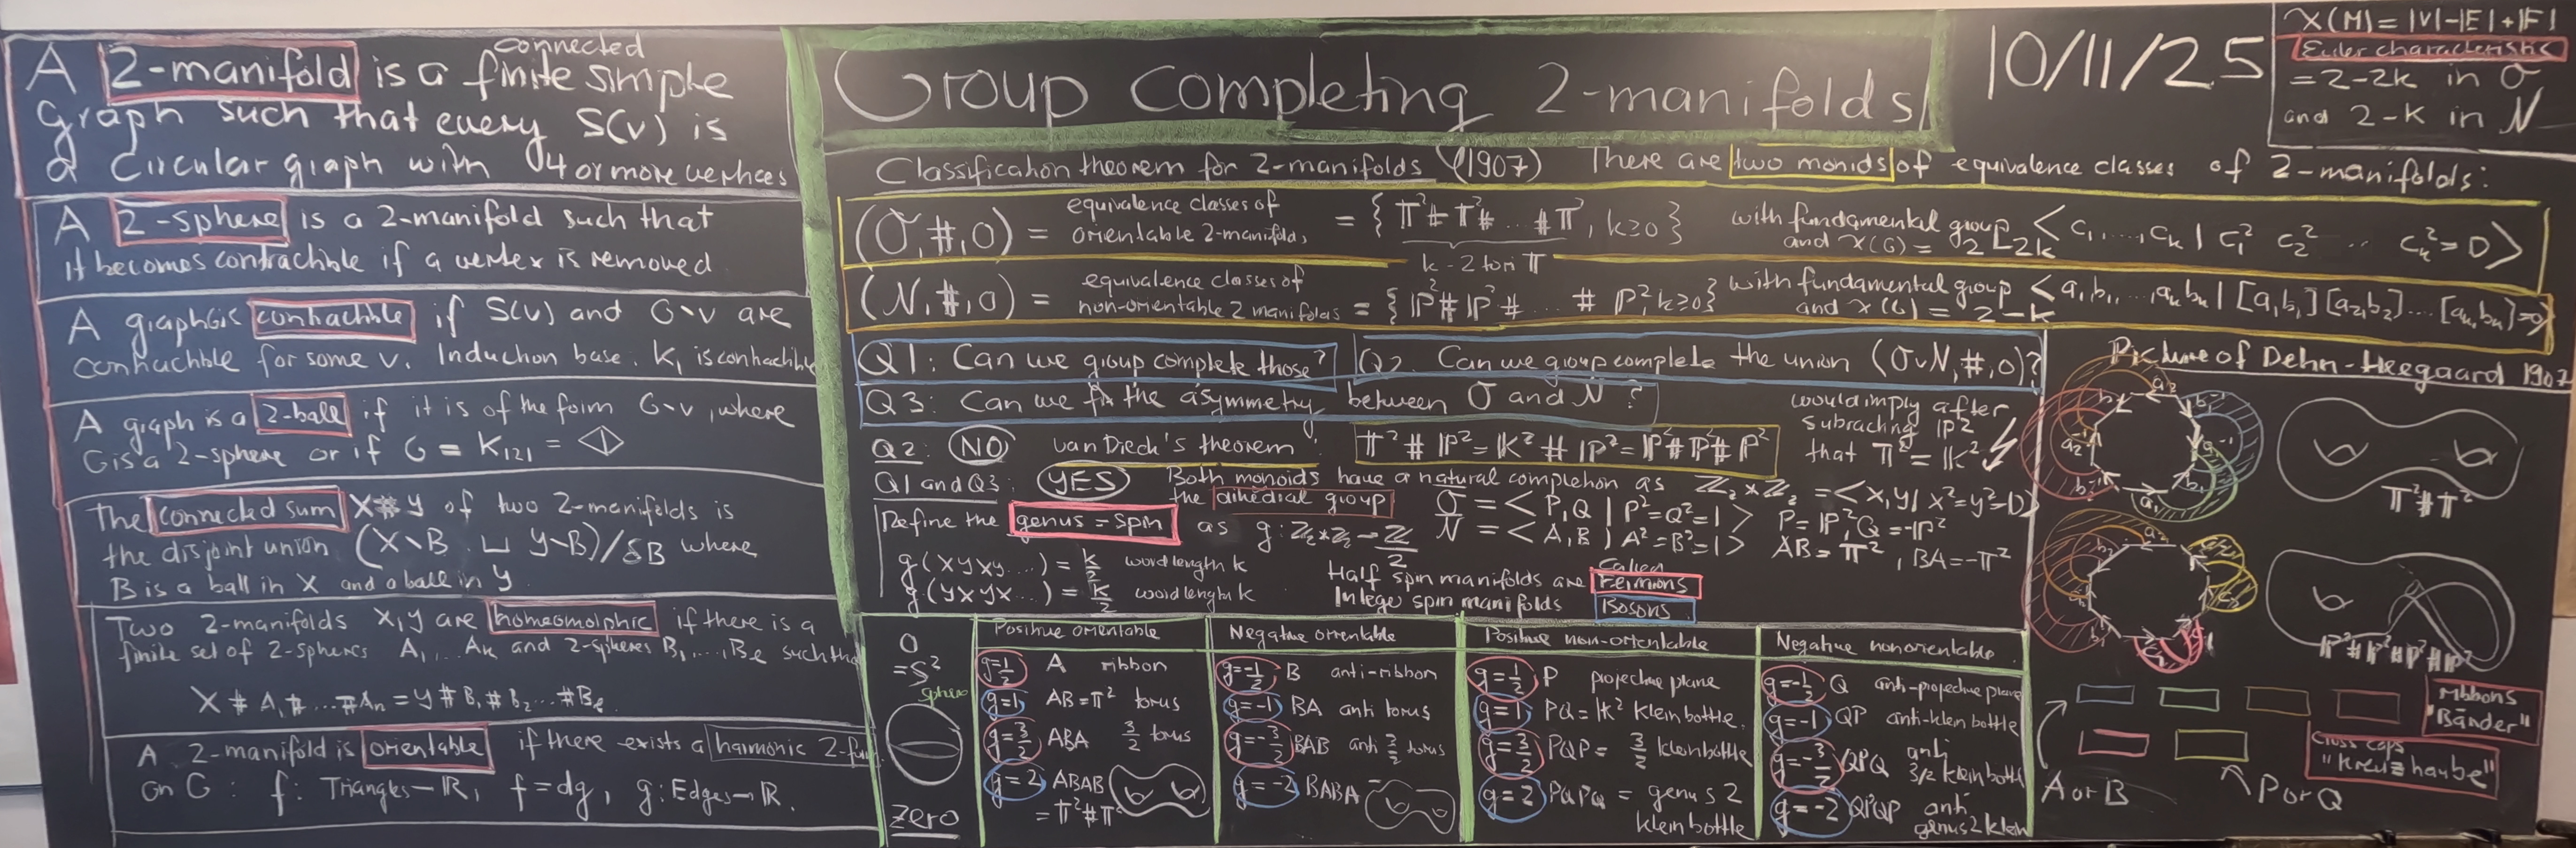 A 2-manifold is a finite simple
connected
graph such that every S(v) is
a circular graph with 4 or more vertices
A 2-sphere is a 2-manifold such that
it becomes contractible if a vertex is removed
A graph G is contractible if S(v) and G\v are
contractible for some v. Induction base. K₁ is contractible
A graph is a 2-ball if it is of the form G-v, where
G is a 2-sphere or if G = K₁₂₁ =
The connected sum X#Y of two 2-manifolds is
the disjoint union (X\B ⊔ Y\B)/δB where
B is a ball in X and a ball in Y
Two 2-manifolds X,Y are homeomorphic if there is a
finite set of 2-spheres A₁,...Aₙ and 2-spheres B₁,...,Bₑ such tha
X # A₁ # ... #Aₙ = Y # B₁ # B₂ ... #Bₑ
A 2-manifold is orientable if there exists a harmonic 2-fun
on G: f: Triangles→ℝ, f=dg, g: Edges→ℝ.
Group Completing 2-manifolds
10/11/25
χ(M) = |V|-|E|+|F|
Euler characteristic
= 2-2k in O
and 2-k in N
Classification theorem for 2-manifolds (1907) There are two monids of equivalence classes of 2-manifolds:
(O,#,0) = equivalence classes of orientable 2-manifolds, = { 𝕋²#𝕋²#...#𝕋², k≥0} with fundamental group < c₁,...,cₖ | c₁² c₂² ... cₖ²=0>
and χ(G) = 2-2k
k-2 tori 𝕋
(N,#,0) = equivalence classes of non-orientable 2 manifolds = { ℙ²#ℙ²#...#ℙ², k≥0} with fundamental group < a₁b₁,...,aₖbₖ | [a₁b₁][a₂,b₂]...[aₖ,bₖ]=0>
and χ(G) = 2-k
Q1: Can we group complete those? Q2. Can we group complete the union (O∪N,#,0)?
Q3: Can we fix the asymmetry between O and N?
Q2: NO van Dieck's theorem: 𝕋²#ℙ²=𝕂²#ℙ²=ℙ²#ℙ²#ℙ²
would imply after
subracting ℙ²
that 𝕋²=𝕂²
Q1 and Q3: YES Both monoids have a natural completion as ℤ₂*ℤ₂ =<x,y| x²=y²=0>
the dihedral group
O = < P,Q | P²=Q²=1> P=ℙ², Q=-ℙ²
N = < A,B | A²=B²=1> AB=𝕋², BA=-𝕋²
Define the genus = spin as g: ℤ₂*ℤ₂→ℤ/2
g(xyxy...) = k/2 word length k
g(yxyx...) = k/2 word length k
Half spin manifolds are called Fermions
Integer spin manifolds Bosons
0
=S²
sphere
zero
Positive orientable
g=1/2 A ribbon
g=1 AB=𝕋² torus
g=3/2 ABA 3/2 torus
g=2 ABAB
=𝕋²#𝕋²
Negative orientable
g=-1/2 B anti-ribbon
g=-1 BA anti torus
g=-3/2 BAB anti 3/2 torus
g=-2 BABA
Positive non-orientable
g=1/2 P projective plane
g=1 PQ=𝕂² Klein bottle.
g=3/2 PQP= 3/2 Kleinbottle
g=2 PQPQ = genus 2
Kleinbottle
Negative nonorientable
g=-1/2 Q anti-projective plane
g=-1 QP anti-klein bottle
g=-3/2 QPQ anti
3/2 klein bottle
g=-2 QPQP anti
genus 2 klein
Picture of Dehn-Heegaard 1907
𝕋²#𝕋²
ℙ²#ℙ²#ℙ²#ℙ²
ribbons
"Bänder"
Cross caps
"Kreuzhaube"
A or B
P or Q